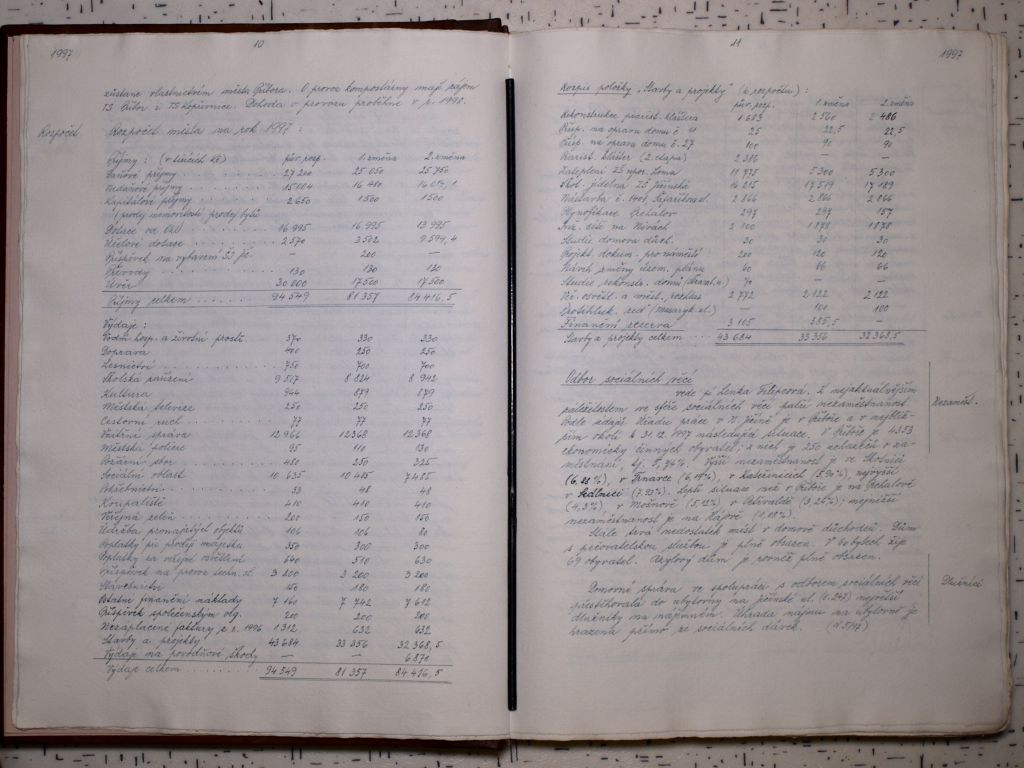 1997
10
zůstane vlastnictvím města Příbora. O provoz kompostárny mají zájem
TS Příbor i TS Kopřivnice. Dohoda o provozu proběhne v r. 1998.
Rozpočet
Rozpočet města na rok 1997 :
Příjmy : (v tisících Kč) pův. rozp. 1. změna 2. změna
Daňové příjmy 27 200 25 050 25 750
Nedaňové příjmy 15 004 16 480
Kapitálové příjmy 2 650 1500 1500
(prodej nemovitostí, prodej bytů
Dotace od OkÚ 16 995 16 995 13 995
Účelové dotace 2 570 3 502 9 594,4
Příspěvek na vybavení ŠJ — 200 —
Převody 130 130 130
Úvěr 30 000 17 500 17 500
Příjmy celkem 94 549 81 357 84 416,5
Výdaje :
Vodní hosp. a životní prostř. 370 330 330
Doprava 400 250 250
Lesnictví 750 700 700
Školská zařízení 9 507 8 824 8 942
Kultura 944 879 879
Městská televize 250 250 250
Cestovní ruch 77 77 77
Vnitřní správa 12 966 12368 12 368
Městská policie 95 110 130
Požární sbor 480 250 325
Sociální oblast 10 635 10 415 7 485
Pohřebnictví 33 48 48
Koupaliště 410 410 410
Veřejná zeleň 200 150 150
Údržba pronajatých objektů 106 106 80
Poplatky při prodeji majetku 350 300 300
Poplatky za veřejné osvětlení 640 510 630
Příspěvek na provoz techn. sl. 3 200 3 200 3 200
Stavebnictví 150 180 180
Ostatní finanční náklady 7 160 7 742 7 612
Příspěvek společenským org. 200 200 200
Nezaplacené faktury z r. 1996 1 312 632 632
Stavby a projekty 43 684 33 356 32 368,5
Výdaje na povodňové škody — — 6 870
Výdaje celkem 94 549 81 357 84 416,5
11
1997
Rozpis položky „Stavby a projekty" (z rozpočtu) :
pův. rozp. 1. změna 2. změna
Rekonstrukce piarist. kláštera 1 603 2 560 2 486
Přísp. na opravu domu č. 11 25 22,5 22,5
Přísp. na opravu domu č. 27 100 90 90
Piarist. klášter (2. etapa) 2 386 — —
Zateplení ZŠ Npor. Loma 11 775 5 300 5 300
Škol. jídelna ZŠ Jičínská 16 215 17 519 17 189
Nástavba č. 1401 Šafaříkova ul. 2 866 2 866 2 866
Plynofikace Prchalov 297 297 157
Inž. sítě na Nivách 2 100 1 878 1 878
Studie domova důch. 30 30 30
Projekt. dokum. pro náměstí 200 120 120
Návrh změny územ. plánu 60 66 66
Studie rekonstr. domů 70 — —
Veř. osvětl. a míst. rozhlas 2 772 2 122 2 122
Protihluk. zeď (Masaryk. ul.) — 100 100
Finanční rezerva 3 105 385,5 —
Stavby a projekty celkem 43 684 33 356 32 368,5
Odbor sociálních věcí
vede p. Lenka Filipcová. K nejaktuálnějším
záležitostem ve sféře sociálních věcí patří nezaměstnanost.
Nezaměst.
Podle údajů Úřadu práce v N. Jičíně je v Příboře a v nejbliž-
ším okolí k 31.12.1997 následující situace. V Příboře je 4353
ekonomicky činných obyvatel, z nich je 250 uchazečů o za-
městnání, tj. 5,74%. Vyšší nezaměstnanost je ve Skotnici
(6,21%), v Trnávce (6,19%), v Kateřinicích (6,90%), nejvyšší
v Sedlnici (7,23%). Lepší situace než v Příboře je na Prchalově
(4,3%), v Mošnově (5,12%), v Petřvaldě (3,26%); nejnižší
nezaměstnanost je na Hájově (1,18%).
Stále trvá nedostatek míst v domově důchodců. Dům
s pečovatelskou službou je plně obsazen. V 60 bytech žije
69 obyvatel. Azylový dům je rovněž plně obsazen.
Dlužníci
Domovní správa ve spolupráci s odborem sociálních věcí
přestěhovala do ubytovny na Jičínské ul. (č. 247) největší
dlužníky na nájemném. Úhrada nájmu na ubytovně je
hrazena přímo ze sociálních dávek.